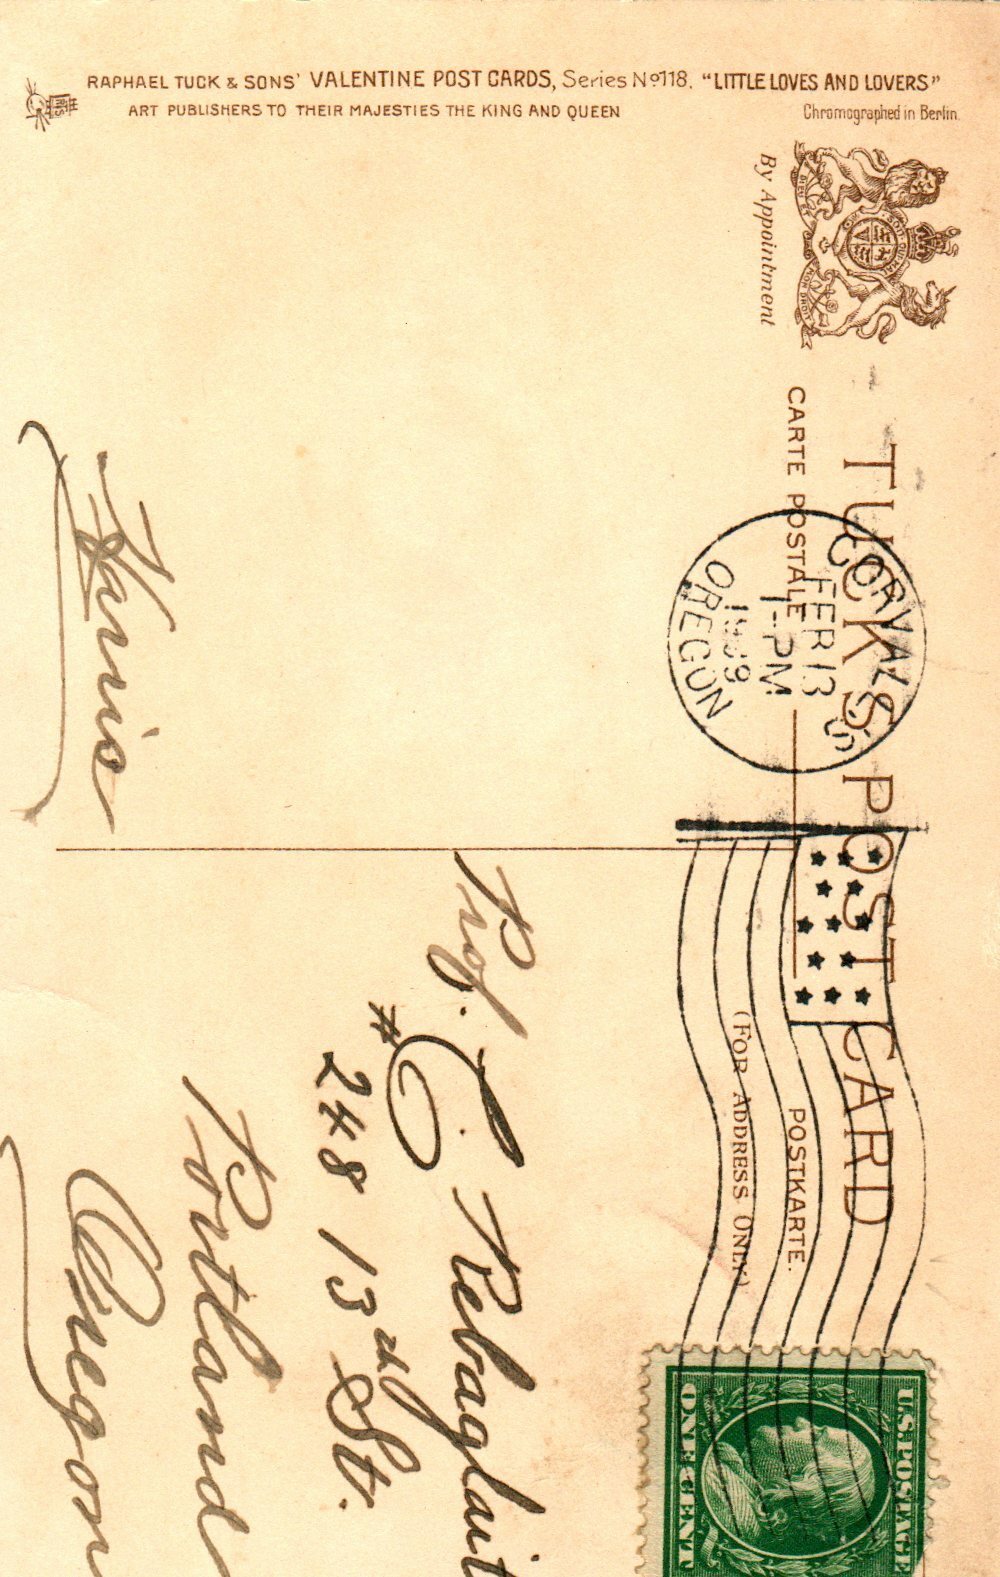 RAPHAEL TUCK & SONS' VALENTINE POST CARDS, Series Nº 118. "LITTLE LOVES AND LOVERS"
ART PUBLISHERS TO THEIR MAJESTIES THE KING AND QUEEN
Chromographed in Berlin.
By Appointment
DIEU ET MON DROIT
TUCK'S POST CARD
CARTE POSTALE
POSTKARTE.
(FOR ADDRESS ONLY)
CORVALLIS
FEB 13
1-PM
1909
OREGON
U.S. POSTAGE
ONE CENT
Prof.
# 248 13th Str.
Portland
Oregon